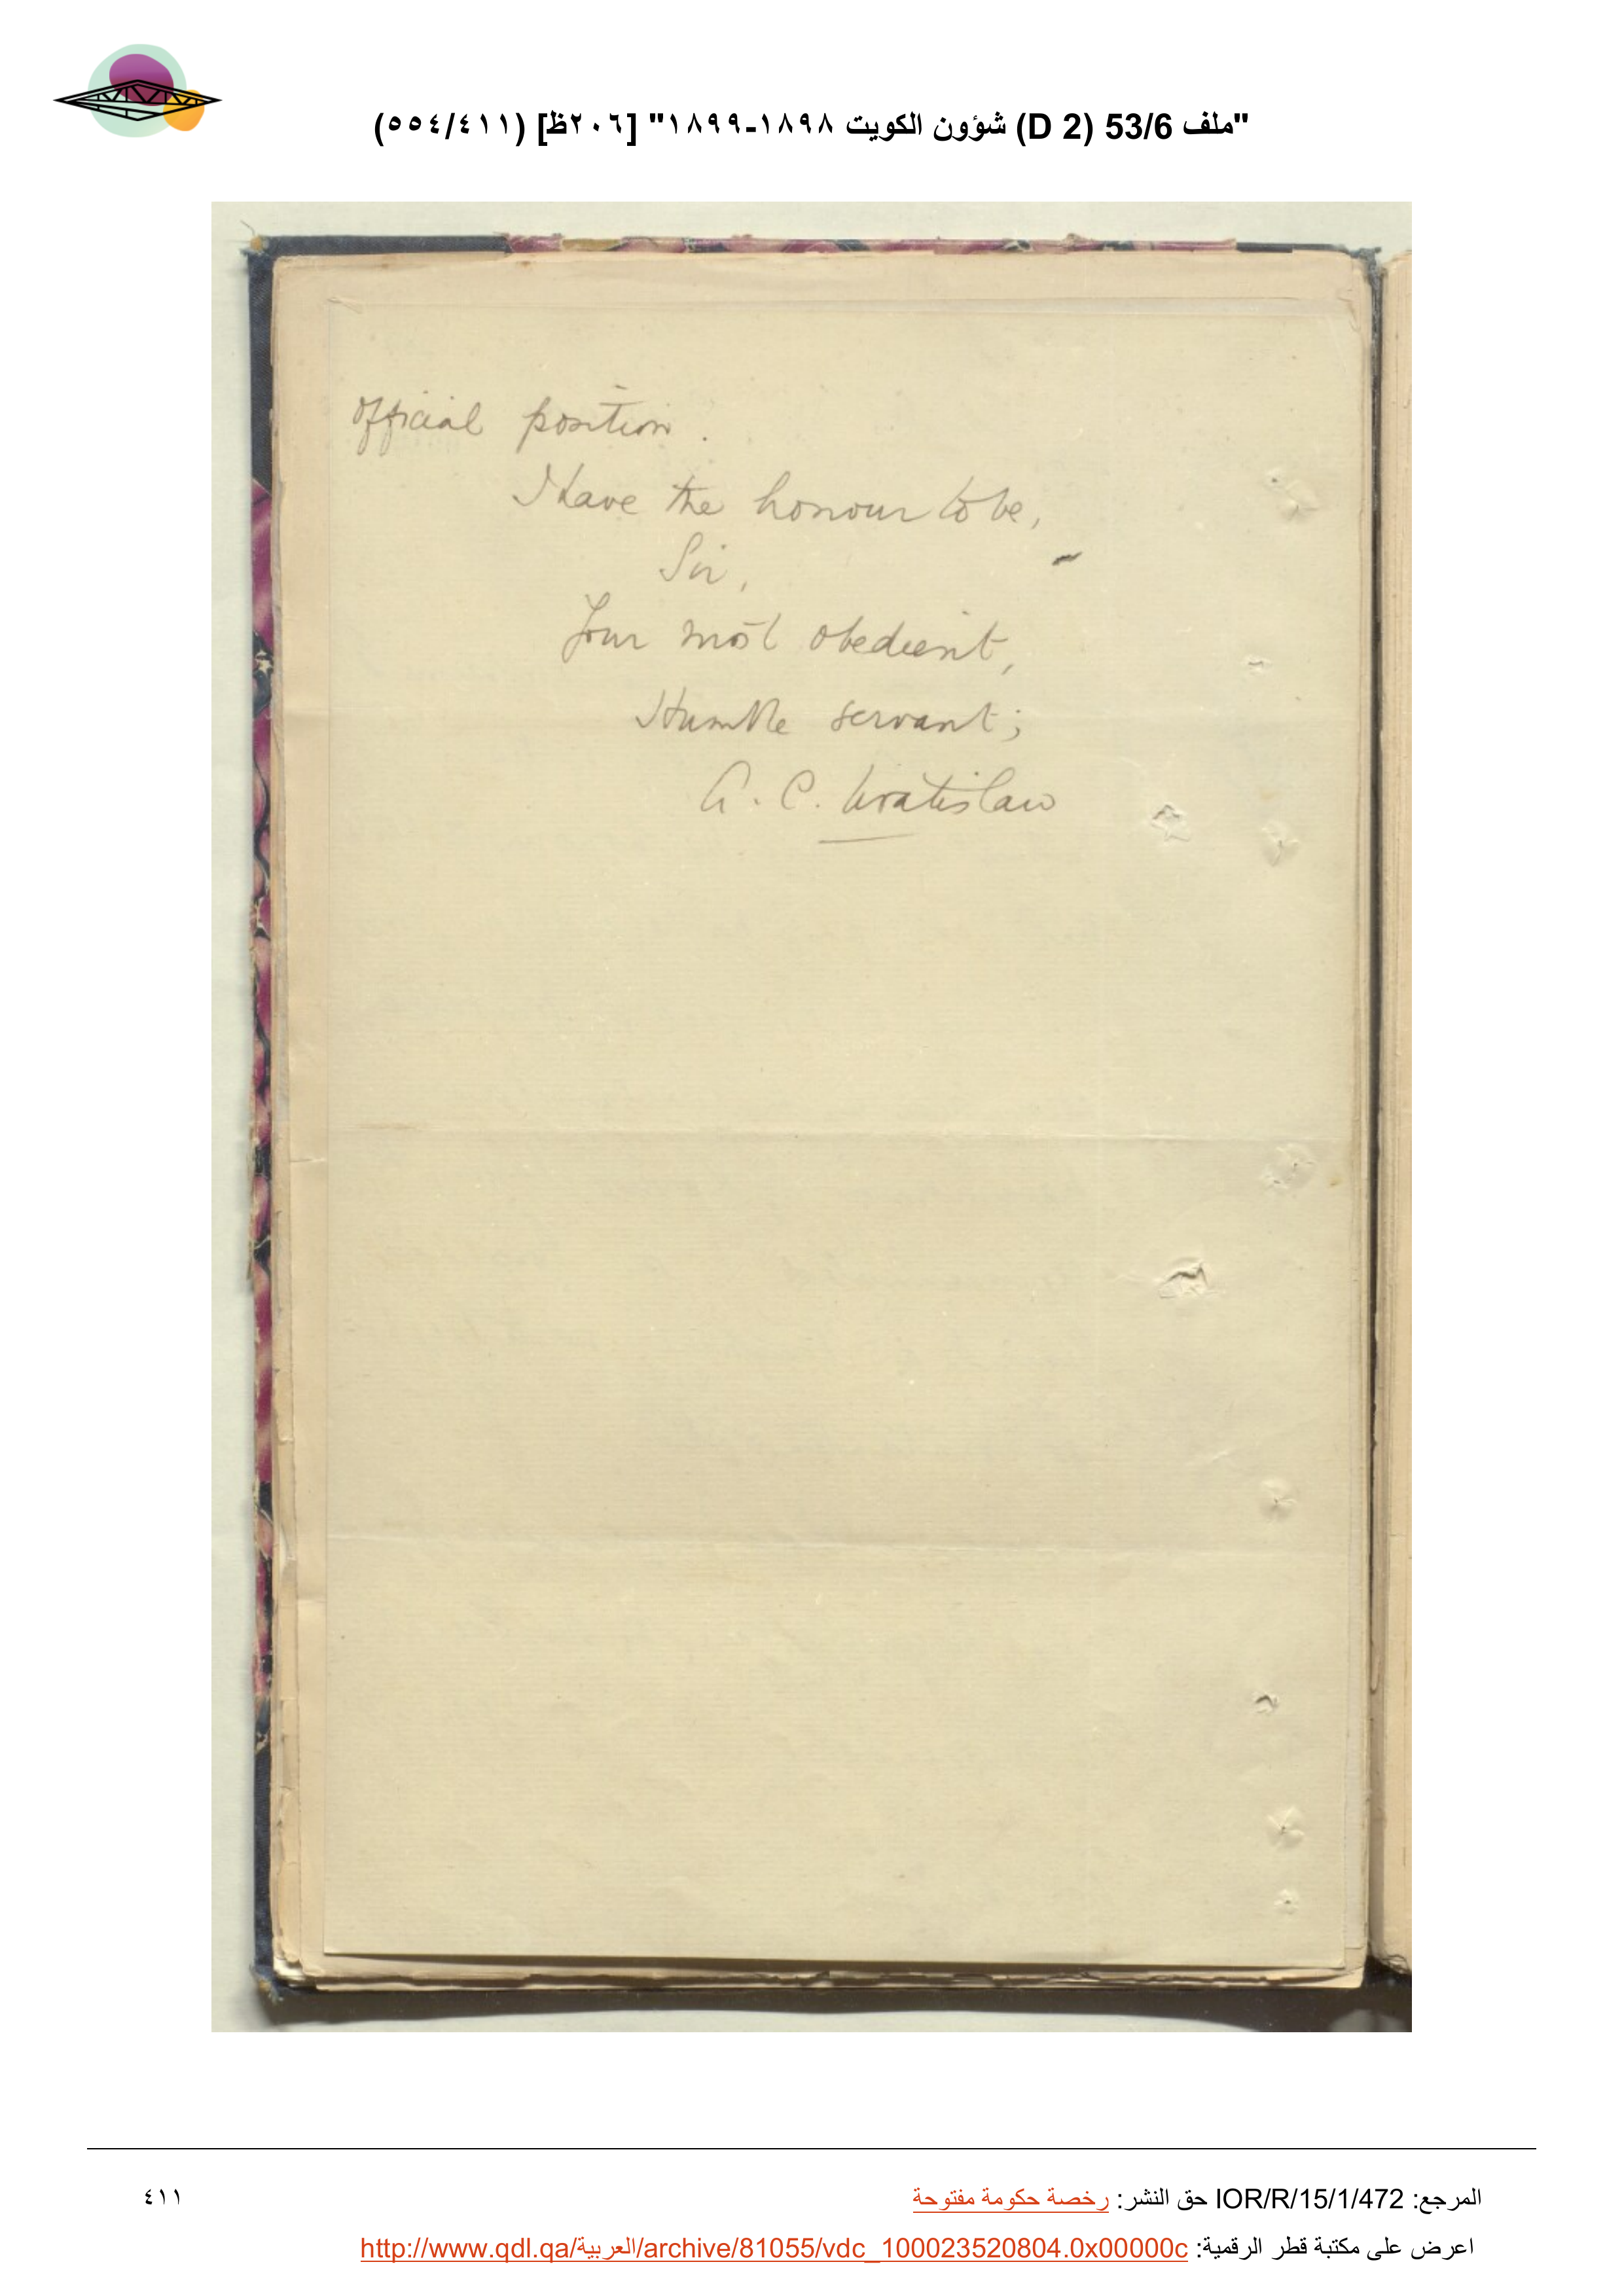 "ملف 53/6 (D 2) شؤون الكويت ١٨٩٨-١٨٩٩" [٢٠٦ظ] (٥٥٤/٤١١)
official position.
I have the honour to be,
Sir,
Your most obedient,
Humble servant;
A. C. Wratislaw
المرجع: IOR/R/15/1/472 حق النشر: رخصة حكومة مفتوحة
٤١١
اعرض على مكتبة قطر الرقمية: http://www.qdl.qa/العربية/archive/81055/vdc_100023520804.0x00000c